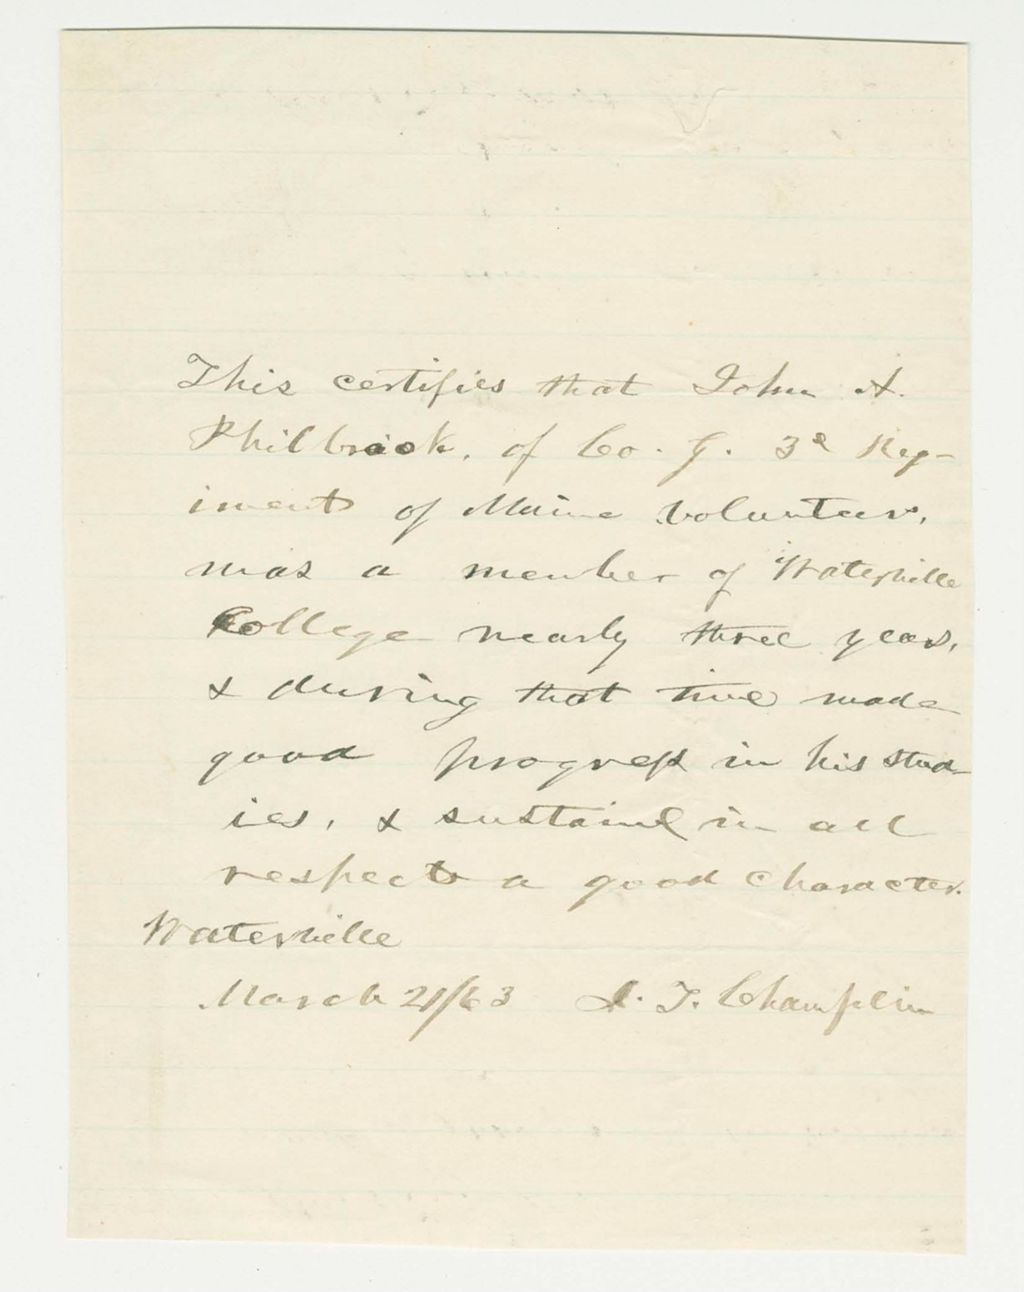 This certifies that John A.
Philbrook, of Co. G. 3d Reg-
iment of Maine volunteers,
was a member of Waterville
College nearly three years,
& during that time made
good progress in his stud-
ies, & sustained in all
respects a good character.
Waterville
March 21/63 J. T. Champlin